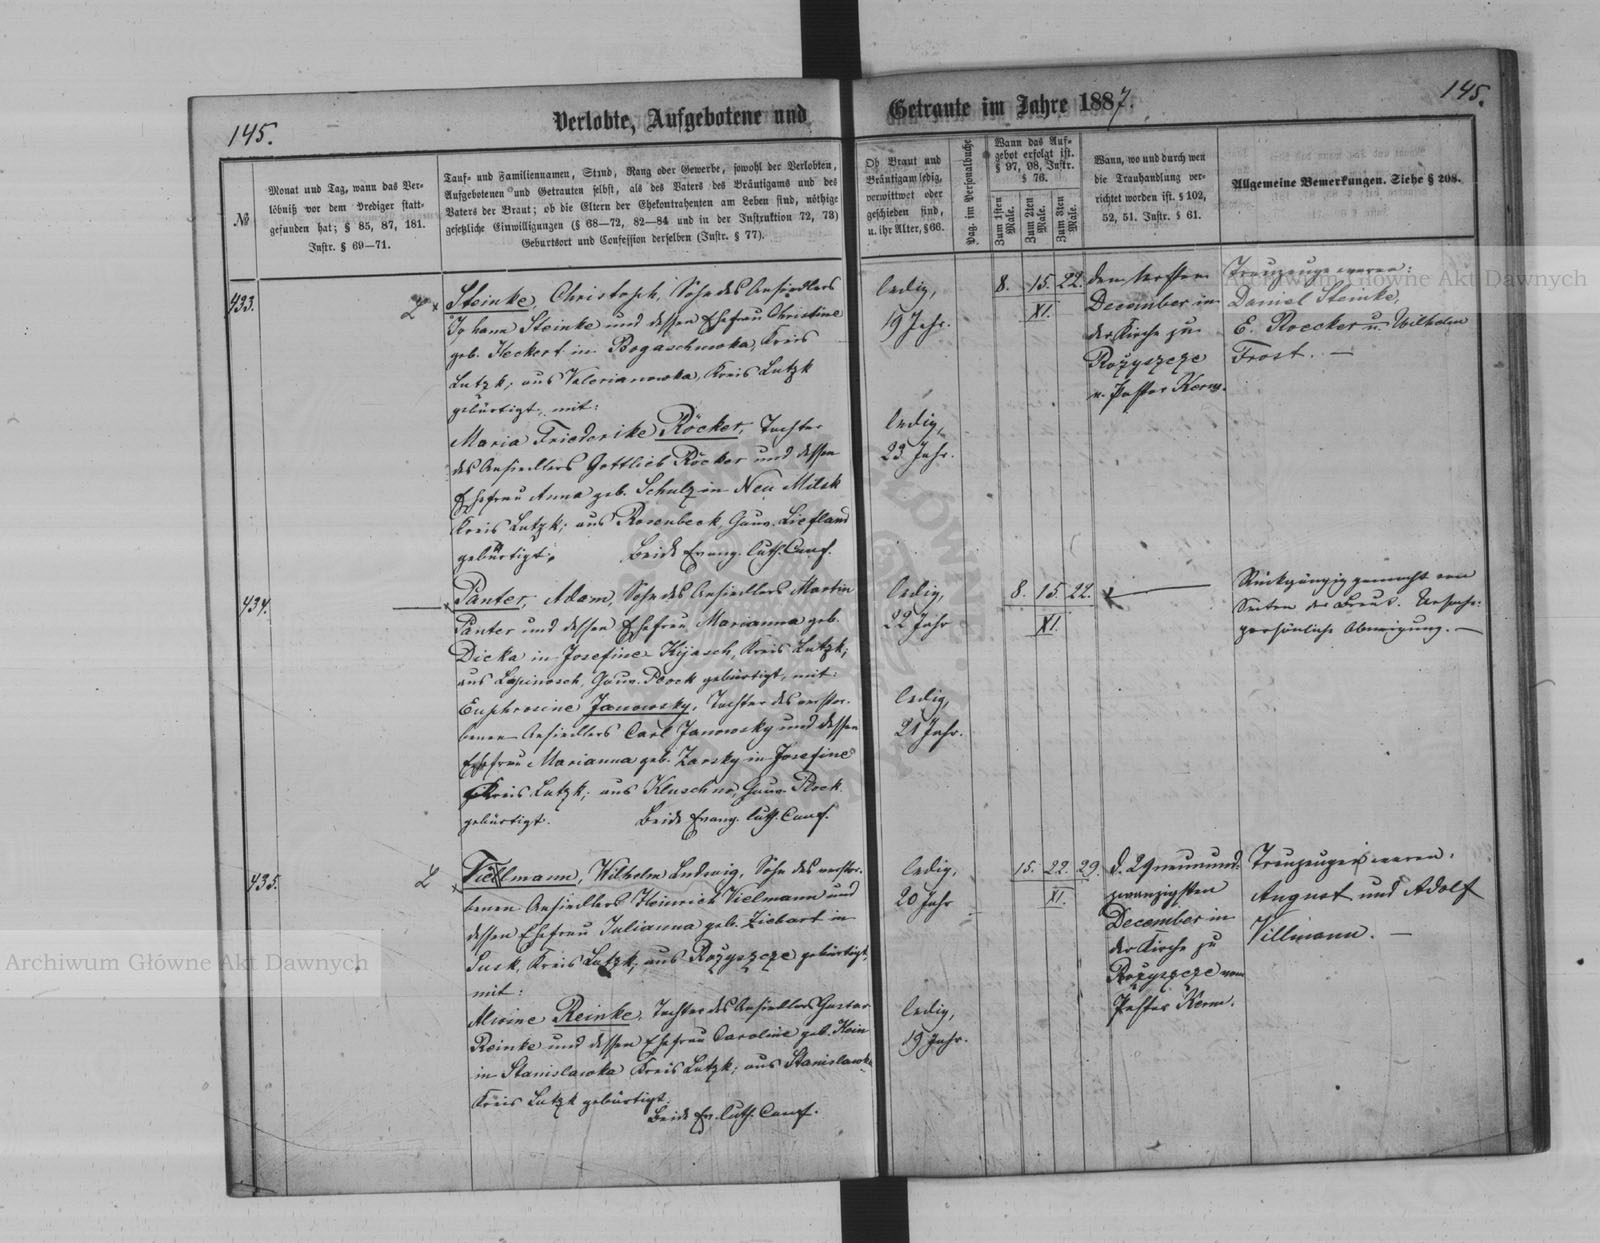 145.
Verlobte, Aufgebotene und
Getraute im Jahre 1887.
145.
№
Monat und Tag, wann das Ver-
löbniß vor dem Prediger statt-
gefunden hat; § 85, 87, 181.
Instr. § 69—71.
Tauf- und Familiennamen, Stand, Rang oder Gewerbe, sowohl der Verlobten,
Aufgebotenen und Getrauten selbst, als des Vaters des Bräutigams und des
Vaters der Braut; ob die Eltern der Ehekontrahenten am Leben sind, nöthige
gesetzliche Einwilligungen (§ 68—72, 82—84 und in der Instruktion 72, 73)
Geburtsort und Confession derselben (Instr. § 77).
Ob Braut und
Bräutigam ledig,
verwittwet oder
geschieden sind,
u. ihr Alter, § 66.
Pag. im Personalbuche
Wann das Auf-
gebot erfolgt ist.
§ 97, 98, Instr.
§ 76.
Zum 1sten Male.
Zum 2ten Male.
Zum 3ten Male.
Wann, wo und durch wen
die Trauhandlung ver-
richtet worden ist. § 102,
52, 51. Instr. § 61.
Allgemeine Bemerkungen. Siehe § 208.
433.
Steinke, Christoph, Sohn des Ansiedlers
Johann Steinke und dessen Ehefrau Christine
geb. Heckert in Bogaschuwka, Kreis
Lutzk; aus Valerianowka, Kreis Lutzk
gebürtigt, mit:
Maria Friederike Röcker, Tochter
des Ansiedlers Gottlieb Röcker und dessen
Ehefrau Anna geb. Schulz in Neu Milsk
Kreis Lutzk; aus Rosenbeck, Gouv. Liefland
gebürtigt.
Beide Evang. luth. Conf.
ledig,
19 Jahr.
ledig,
23 Jahr.
8. 15. 22.
XI.
den ersten
December in
der Kirche zu
Rożyszcze
v. Pastor Kerm.
Trauzeuge waren:
Daniel Steinke,
E. Roecker u. Wilhelm
Frost. —
434.
Panter, Adam, Sohn des Ansiedlers Martin
Panter und dessen Ehefrau Marianna geb.
Dicka in Josefine Kijasch, Kreis Lutzk;
aus Lapinosch, Gouv. Plock gebürtigt, mit:
Euphrosine Janowsky, Tochter des verstor-
benen Ansiedlers Carl Janowsky und dessen
Ehefrau Marianna geb. Zarsky in Josefine
Kreis Lutzk; aus Kluschno, Gouv. Plock
gebürtigt.
Beide Evang. luth. Conf.
ledig,
22 Jahr
ledig,
21 Jahr.
8. 15. 22.
XI.
Rückgängig gemacht von
Seiten der Braut. Ursache:
persönliche Abneigung. —
435.
Vielmann, Wilhelm Ludwig, Sohn des verstor-
benen Ansiedlers Heinrich Vielmann und
dessen Ehefrau Julianna geb. Ziebart in
Susk, Kreis Lutzk; aus Rożyszcze gebürtigt,
mit:
Alwine Reinke, Tochter des Ansiedlers Gustav
Reinke und dessen Ehefrau Caroline geb. Hein
in Stanislawka Kreis Lutzk; aus Stanislawka
Kreis Lutzk gebürtigt.
Beide Ev. luth. Conf.
ledig,
20 Jahr
ledig,
19 Jahr.
15. 22. 29.
XI.
d. 29 neunund-
zwanzigsten
December in
der Kirche zu
Rożyszcze vom
Pastor Kerm.
Trauzeugen waren:
August und Adolf
Villmann. —
Archiwum Główne Akt Dawnych
Archiwum Główne Akt Dawnych